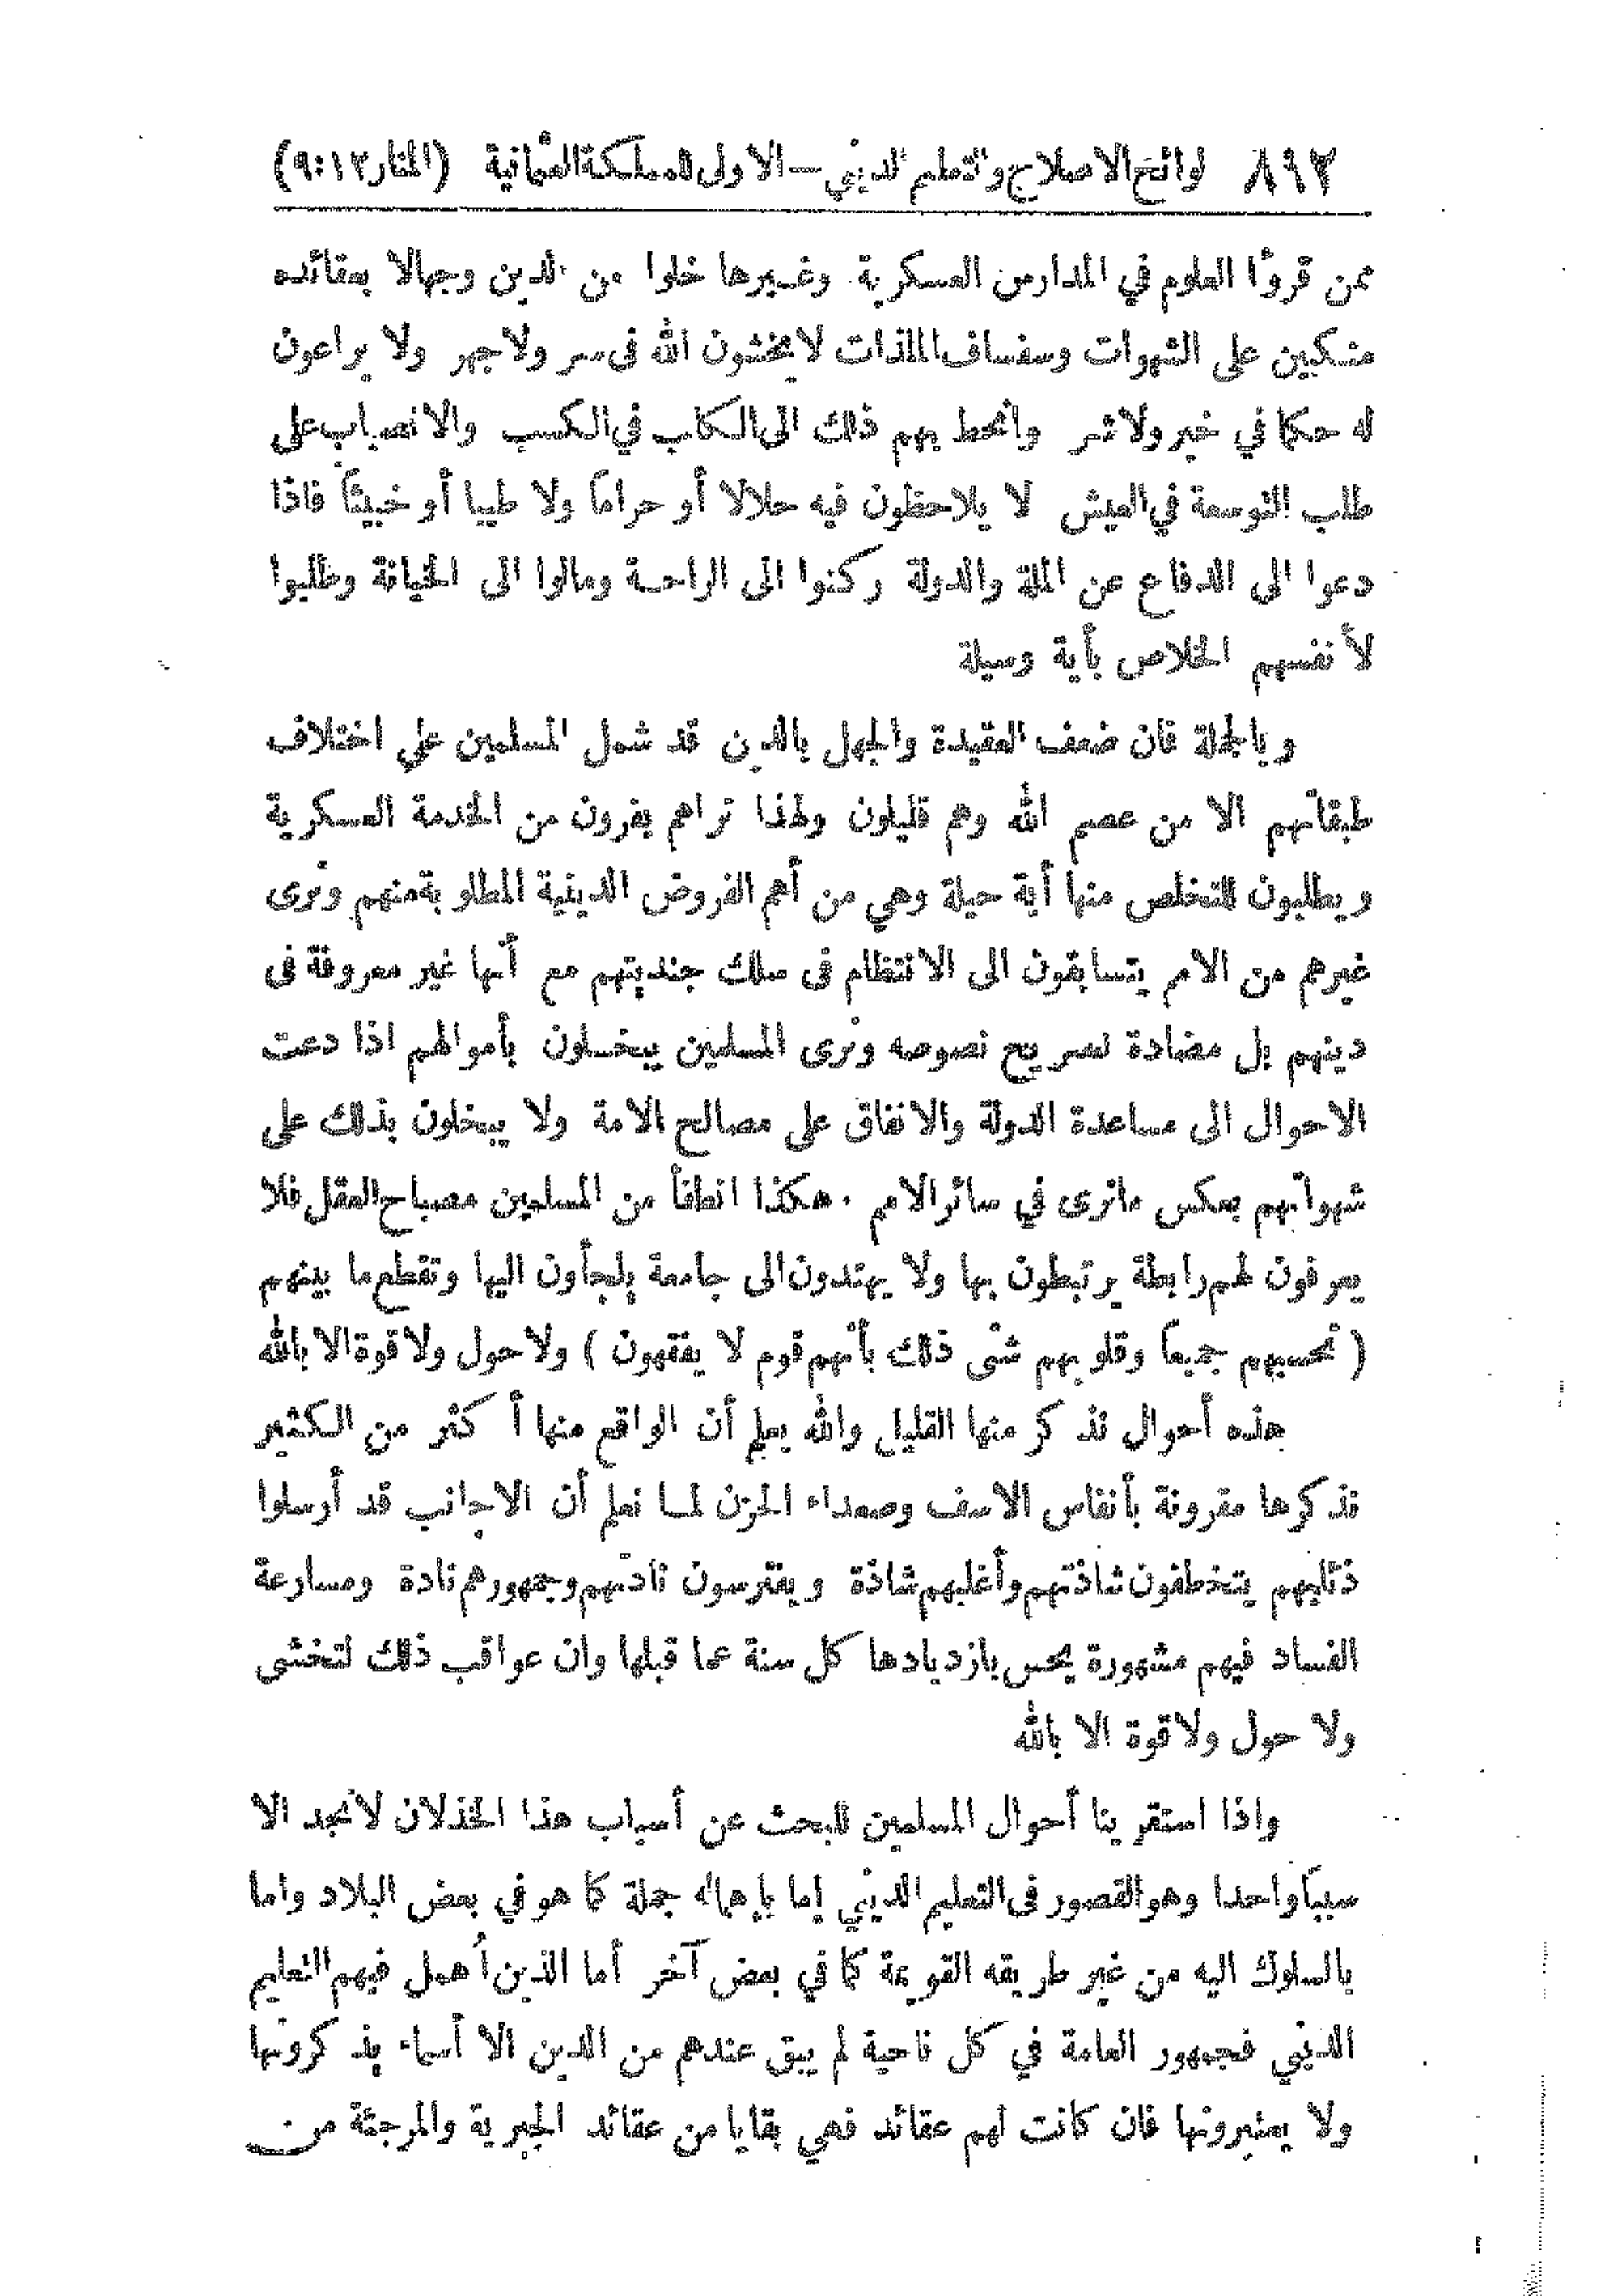 ٨٩٢ لوائح الاصلاح والتعليم الديني — الاولى للمملكة العثمانية (المنار ١٢:٩)
ممن قرؤا العلوم في المدارس العسكرية وغيرها خلوا من الدين وجهالا بعقائده
منكبين على الشهوات وسفساف الملذات لا يخشون الله في سر ولا جهر ولا يراعون
له حكما في خير ولا شر وانحط بهم ذلك الى الكلب في الكسب والانصباب على
طلب التوسعة في العيش لا يلاحظون فيه حلالا أو حراماً ولا طيبا أو خبيثاً فاذا
دعوا الى الدفاع عن الملة والدولة ركنوا الى الراحة ومالوا الى الخيانة وطلبوا
لأنفسهم الخلاص بأية وسيلة
وبالجملة فان ضعف العقيدة والجهل بالدين قد شمل المسلمين على اختلاف
طبقاتهم الا من عصم الله وهم قليلون ولهذا تراهم يفرون من الخدمة العسكرية
ويطلبون للتخلص منها أية حيلة وهي من أهم الفروض الدينية المطلوبة منهم ونرى
غيرهم من الامم يتسابقون الى الانتظام في سلك جنديتهم مع أنها غير معروفة في
دينهم بل مضادة لصريح نصوصه ونرى المسلمين يبخلون بأموالهم اذا دعت
الاحوال الى مساعدة الدولة والانفاق على مصالح الامة ولا يبخلون بذلك على
شهواتهم بعكس ما نرى في سائر الامم . هكذا انطفأ من المسلمين مصباح العقل فلا
يعرفون لهم رابطة يرتبطون بها ولا يهتدون الى جامعة يلجأون اليها وتقطع ما بينهم
( تحسبهم جميعاً وقلوبهم شتى ذلك بأنهم قوم لا يفقهون ) ولا حول ولا قوة الا بالله
هذه أحوال نذكر منها القليل والله يعلم أن الواقع منها أكثر من الكثير
نذكرها مقرونة بأنفاس الاسف وصعداء الحزن لما نعلم أن الاجانب قد أرسلوا
ذئابهم يتخطفون شاذتهم وأغلبهم شاذة ويفترسون نادتهم وجمهورهم نادة ومسارعة
الفساد فيهم مشهورة يحس بازديادها كل سنة عما قبلها وان عواقب ذلك لتخشى
ولا حول ولا قوة الا بالله
واذا استقرينا أحوال المسلمين للبحث عن أسباب هذا الخذلان لا نجد الا
سبباً واحدا وهو القصور في التعليم الديني إما بإهماله جملة كما هو في بعض البلاد واما
بالسلوك اليه من غير طريقه القويمة كما في بعض آخر أما الذين أُهمل فيهم التعليم
الديني فجمهور العامة في كل ناحية لم يبق عندهم من الدين الا أسماء يذكرونها
ولا يعتبرونها فان كانت لهم عقائد فهي بقايا من عقائد الجبرية والمرجئة من